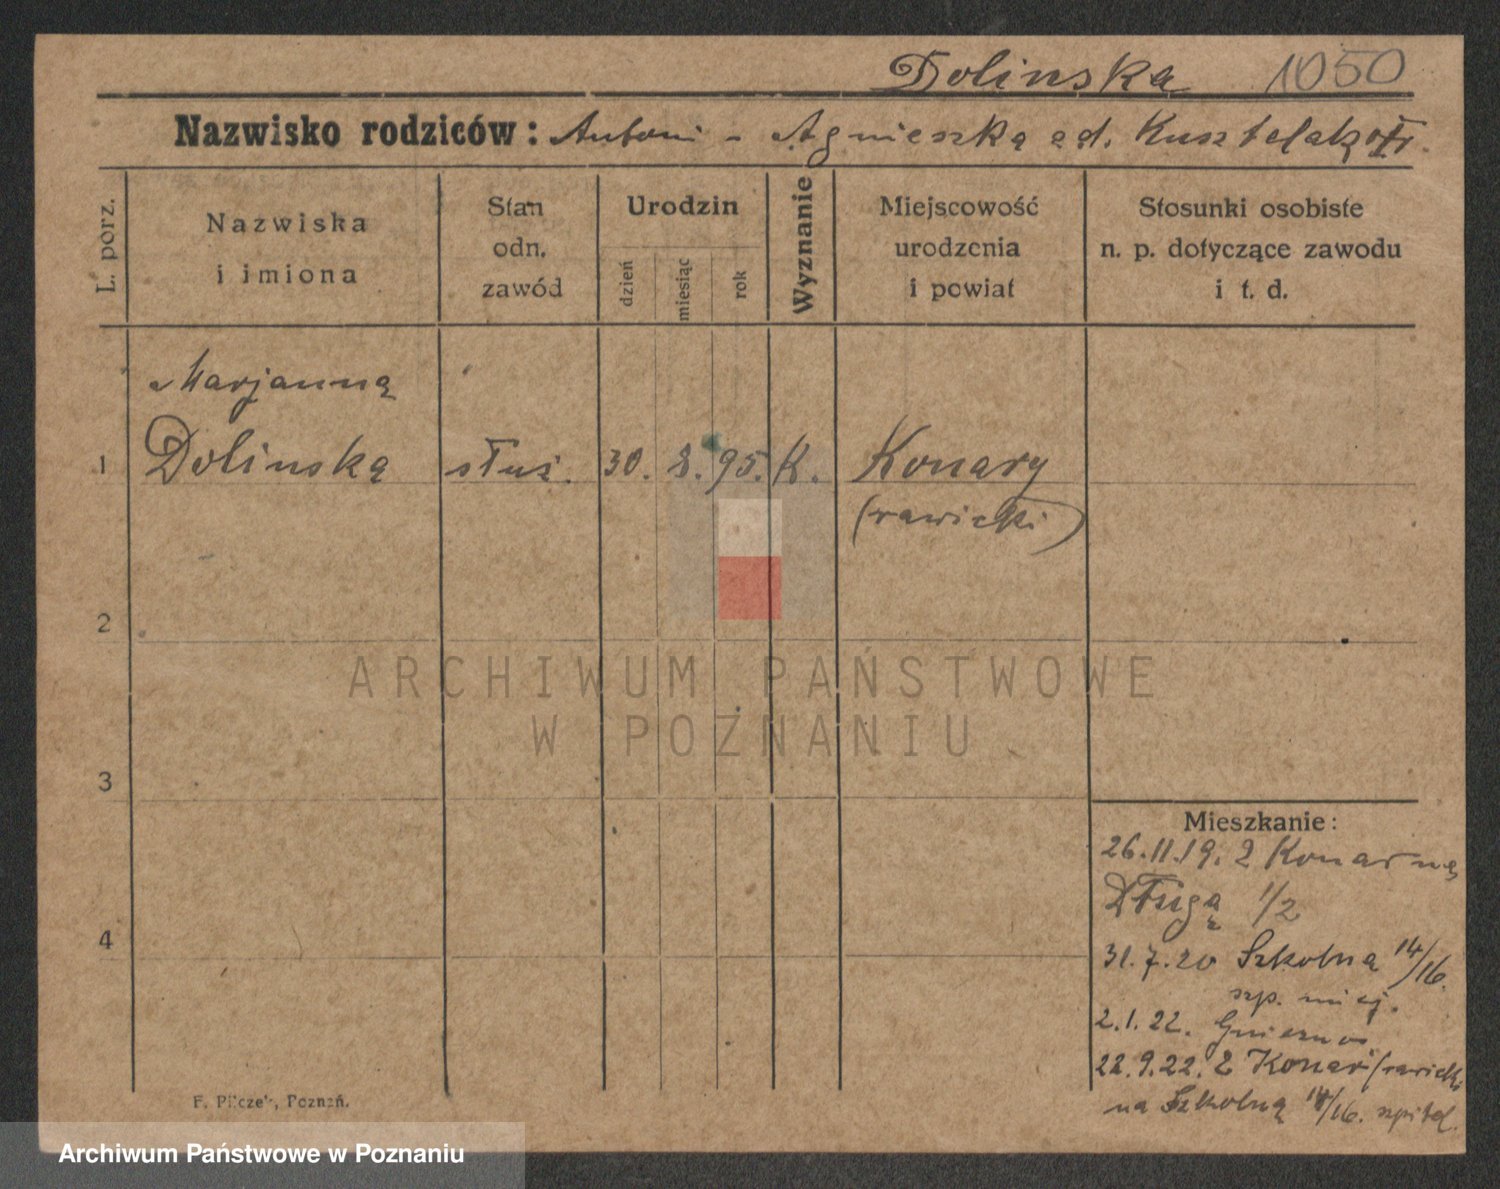 Dolinska 1050
Nazwisko rodziców: Antoni - Agnieszka
L. porz.
Nazwiska i imiona
Stan odn. zawód
Urodzin
dzień
miesiąc
rok
Wyznanie
Miejscowość urodzenia i powiat
Stosunki osobiste n. p. dotyczące zawodu i t. d.
Marjanna
1 Dolinska służ. 30. 8. 95. K. Konary
(rawicki)
2
ARCHIWUM PAŃSTWOWE
W POZNANIU
3
Mieszkanie:
26.11.19. z Konar na
Długą 1/2
4
31.7.20 Szkolna 14/16.
szp. miej.
2.1.22. Gniezno
22.9.22. z Konar (rawicki
na Szkolną 14/16. szpital.
F. Pilczek, Poznań.
Archiwum Państwowe w Poznaniu